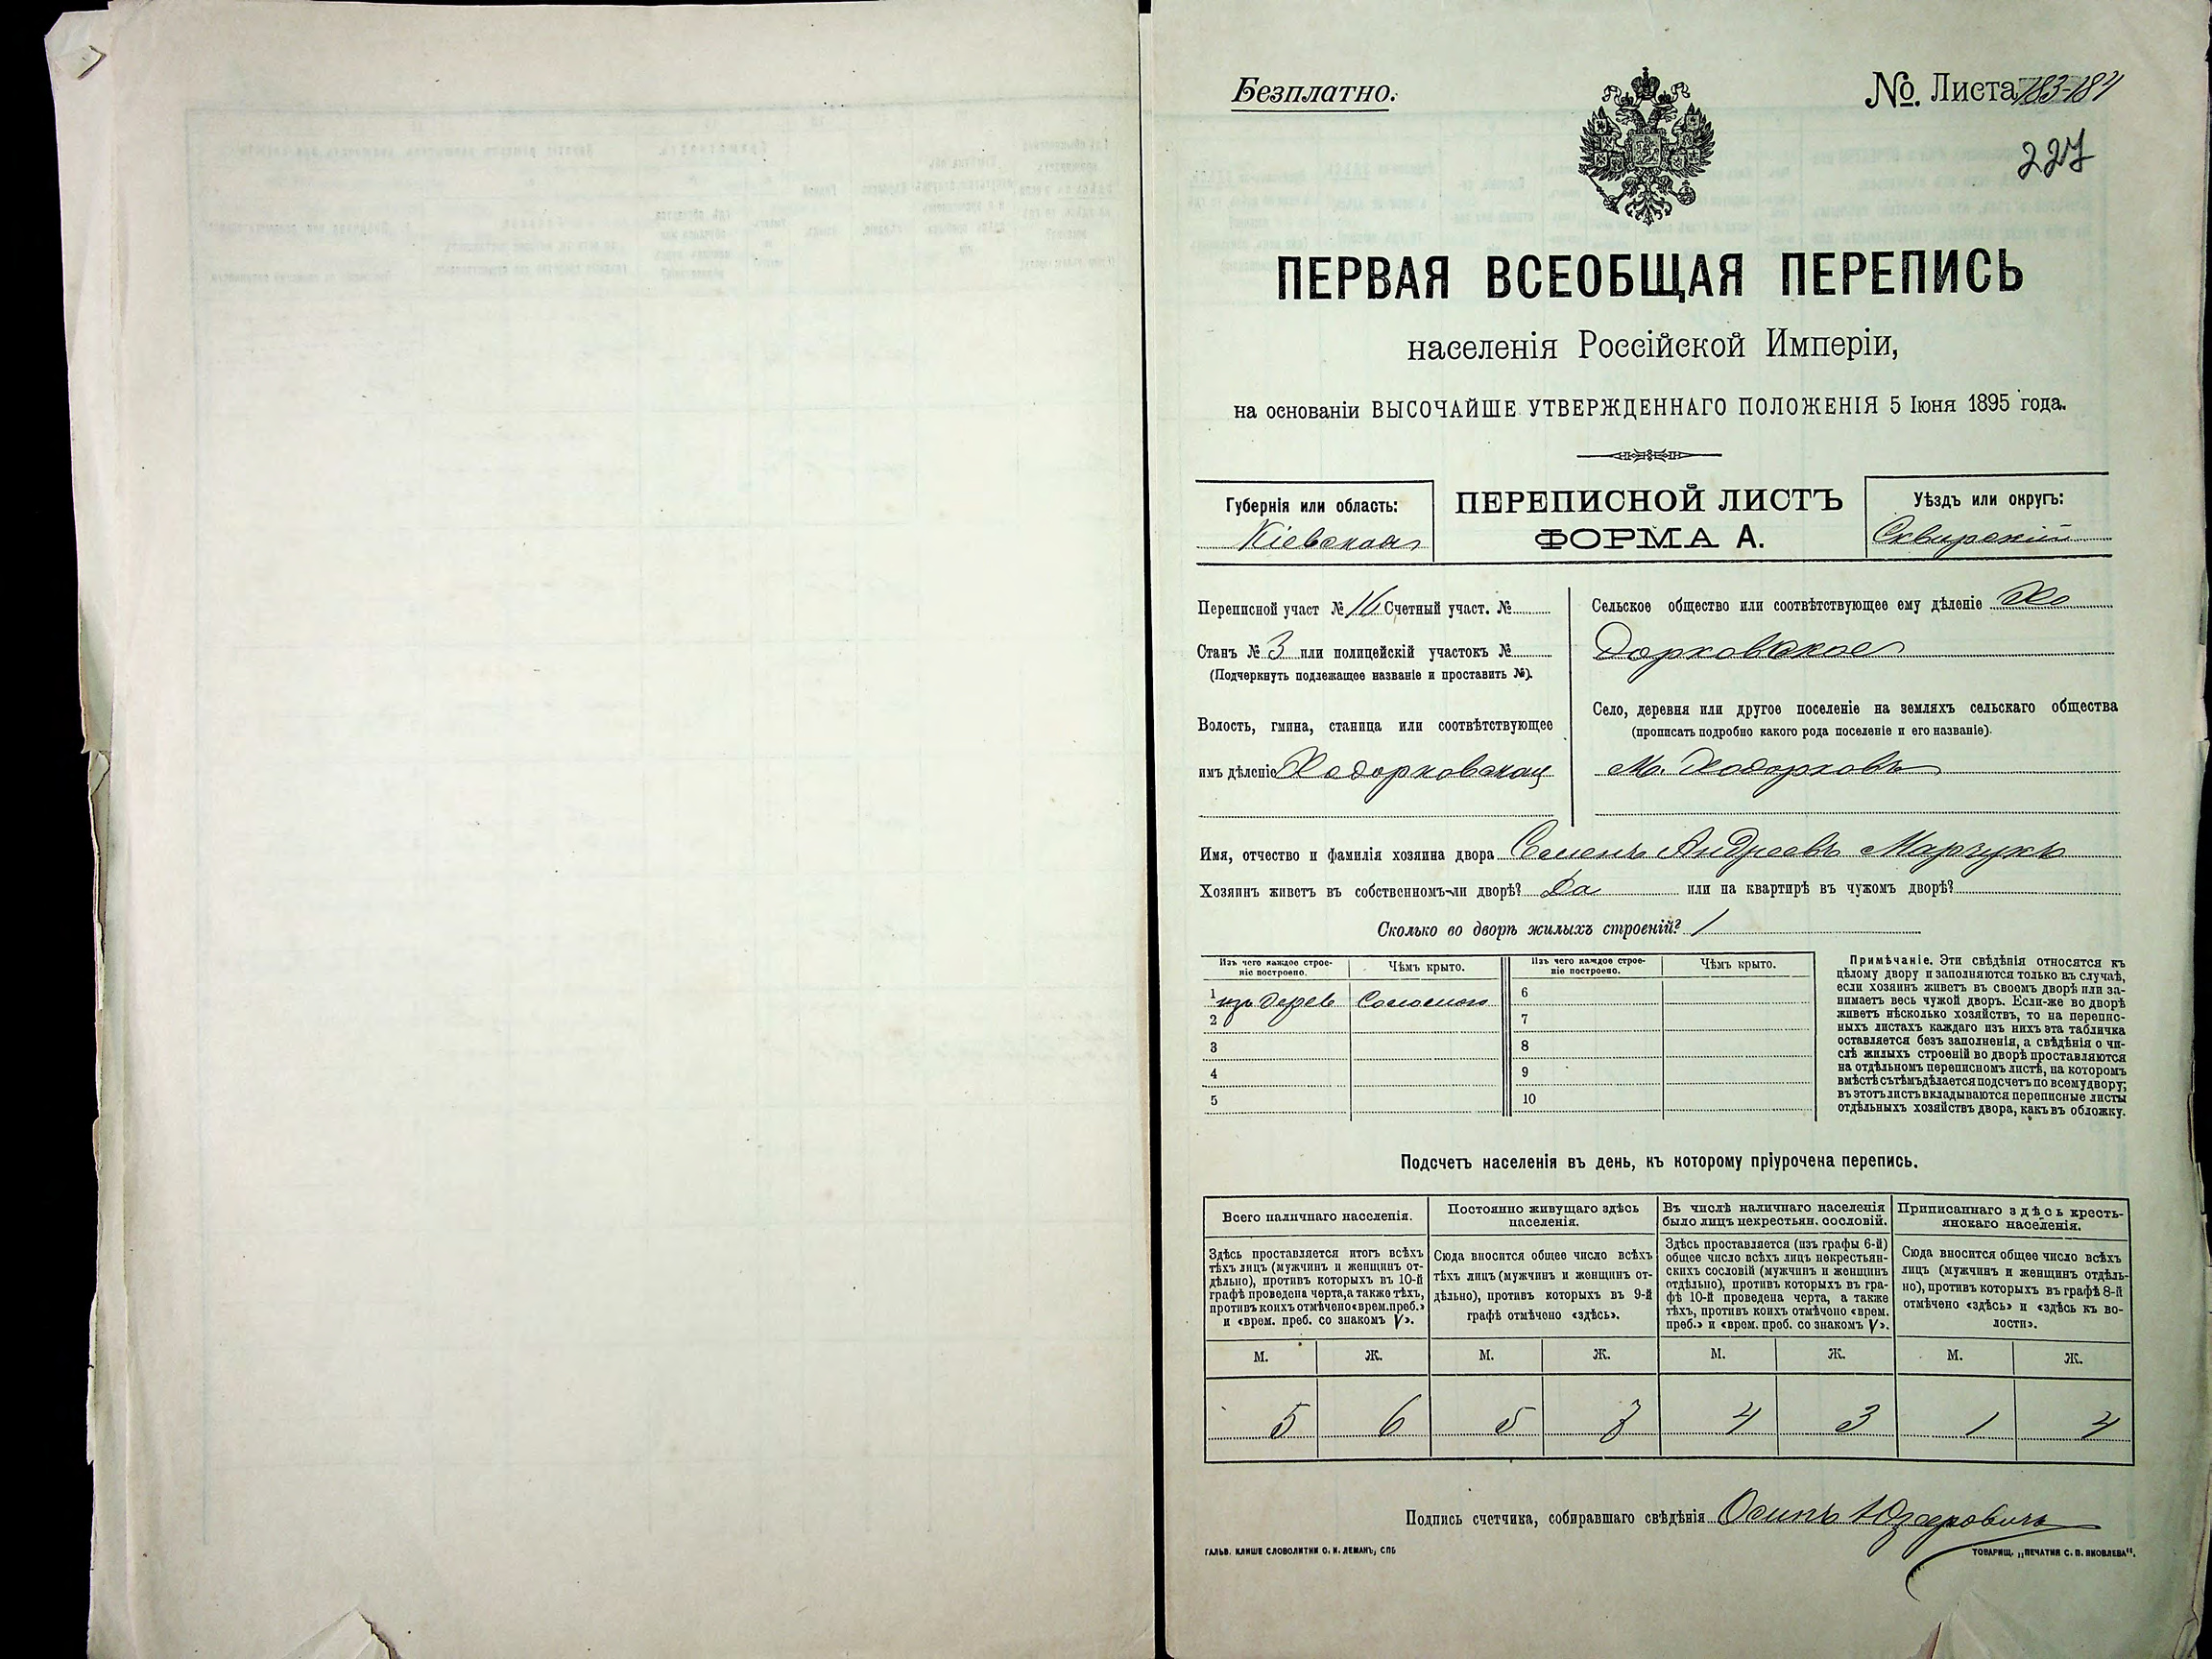 Безплатно.
№. Листа 183-184
227
ПЕРВАЯ ВСЕОБЩАЯ ПЕРЕПИСЬ
населенія Россійской Имперіи,
на основаніи ВЫСОЧАЙШЕ УТВЕРЖДЕННАГО ПОЛОЖЕНІЯ 5 Іюня 1895 года.
Губернія или область:
Кіевская
ПЕРЕПИСНОЙ ЛИСТЪ
ФОРМА А.
Уѣздъ или округъ:
Сквирскій
Переписной участ № 16 Счетный участ. №
Станъ № 3 или полицейскій участокъ №
(Подчеркнуть подлежащее названіе и проставить №).
Волость, гмина, станица или соотвѣтствующее
имъ дѣленіе Ходорковская
Сельское общество или соотвѣтствующее ему дѣленіе Хо
дорковское
Село, деревня или другое поселеніе на земляхъ сельскаго общества
(прописать подробно какого рода поселеніе и его названіе).
М. Ходорковъ
Имя, отчество и фамилія хозяина двора Семенъ Андреевъ Марчукъ
Хозяинъ живетъ въ собственномъ-ли дворѣ? Да или на квартирѣ въ чужомъ дворѣ?
Сколько во дворѣ жилыхъ строеній? 1
Изъ чего каждое строе-
ніе построено.
Чѣмъ крыто.
Изъ чего каждое строе-
ніе построено.
Чѣмъ крыто.
1 изъ дерев Соломою
2
3
4
5
6
7
8
9
10
Примѣчаніе. Эти свѣдѣнія относятся къ
цѣлому двору и заполняются только въ случаѣ,
если хозяинъ живетъ въ своемъ дворѣ или за-
нимаетъ весь чужой дворъ. Если-же во дворѣ
живетъ нѣсколько хозяйствъ, то на перепис-
ныхъ листахъ каждаго изъ нихъ эта табличка
оставляется безъ заполненія, а свѣдѣнія о чи-
слѣ жилыхъ строеній во дворѣ проставляются
на отдѣльномъ переписномъ листѣ, на которомъ
вмѣстѣ съ тѣмъ дѣлается подсчетъ по всему двору;
въ этотъ листъ вкладываются переписные листы
отдѣльныхъ хозяйствъ двора, какъ въ обложку.
Подсчетъ населенія въ день, къ которому пріурочена перепись.
Всего наличнаго населенія.
Здѣсь проставляется итогъ всѣхъ
тѣхъ лицъ (мужчинъ и женщинъ от-
дѣльно), противъ которыхъ въ 10-й
графѣ проведена черта, а также тѣхъ,
противъ коихъ отмѣчено «врем. преб.»
и «врем. преб. со знакомъ V».
Постоянно живущаго здѣсь
населенія.
Сюда вносится общее число всѣхъ
тѣхъ лицъ (мужчинъ и женщинъ от-
дѣльно), противъ которыхъ въ 9-й
графѣ отмѣчено «здѣсь».
Въ числѣ наличнаго населенія
было лицъ некрестьян. сословій.
Здѣсь проставляется (изъ графы 6-й)
общее число всѣхъ лицъ некрестьян-
скихъ сословій (мужчинъ и женщинъ
отдѣльно), противъ которыхъ въ гра-
фѣ 10-й проведена черта, а также
тѣхъ, противъ коихъ отмѣчено «врем.
преб.» и «врем. преб. со знакомъ V».
Приписаннаго здѣсь кресть-
янскаго населенія.
Сюда вносится общее число всѣхъ
лицъ (мужчинъ и женщинъ отдѣль-
но), противъ которыхъ въ графѣ 8-й
отмѣчено «здѣсь» и «здѣсь въ во-
лости».
М. Ж. М. Ж. М. Ж. М. Ж.
5 6 5 7 4 3 1 4
Подпись счетчика, собиравшаго свѣдѣнія Осипъ
ГАЛЬВ. КЛИШЕ СЛОВОЛИТНИ О. И. ЛЕМАНЪ, СПБ
ТОВАРИЩ. „ПЕЧАТНЯ С. П. ЯКОВЛЕВА".